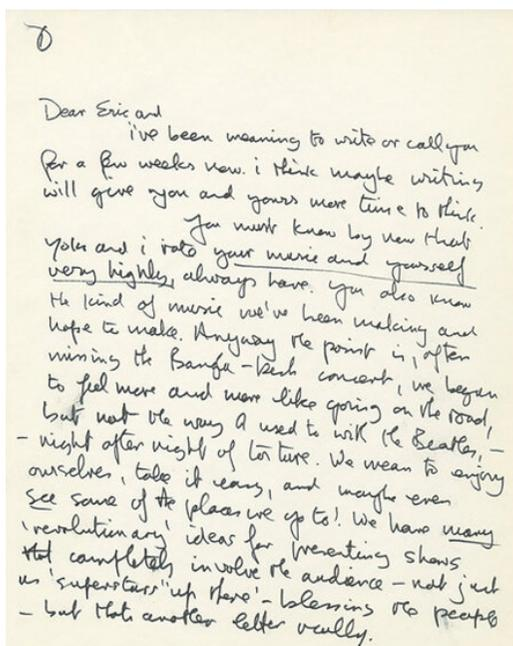 Dear Eric and
i've been meaning to write or call you
for a few weeks now. i think maybe writing
will give you and yours more time to think.
You must know by now that
Yoko and i rate your music and yourself
very highly, always have. you also know
the kind of music we've been making and
hope to make. Anyway the point is, after
missing the Bangla-Desh concert, we began
to feel more and more like going on the road,
but not the way I used to with the Beatles, –
– night after night of torture. We mean to enjoy
ourselves, take it easy, and maybe even
see some of the places we go to! We have many
'revolutionary' ideas for presenting shows
that completely involve the audience – not just
as 'superstars' 'up there' – blessing the people
– but thats another letter really.